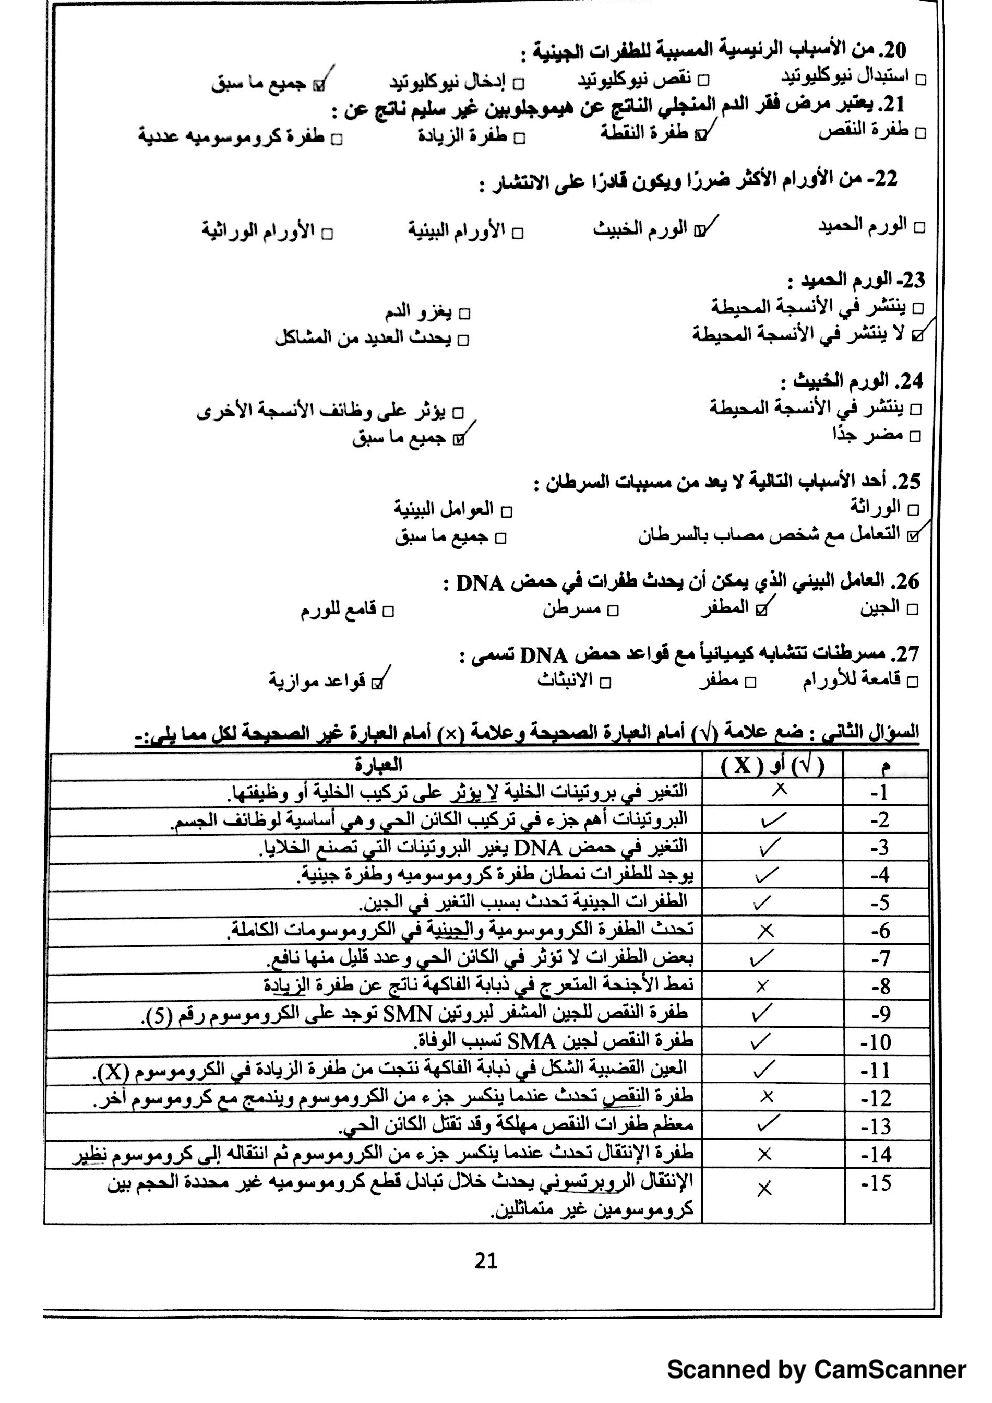 20. من الأسباب الرئيسية المسببة للطفرات الجينية :
□ استبدال نيوكليوتيد □ نقص نيوكليوتيد □ إدخال نيوكليوتيد ☑ جميع ما سبق
21. يعتبر مرض فقر الدم المنجلي الناتج عن هيموجلوبين غير سليم ناتج عن :
□ طفرة النقص ☑ طفرة النقطة □ طفرة الزيادة □ طفرة كروموسوميه عددية
22- من الأورام الأكثر ضررًا ويكون قادرًا على الانتشار :
□ الورم الحميد ☑ الورم الخبيث □ الأورام البيئية □ الأورام الوراثية
23- الورم الحميد :
□ ينتشر في الأنسجة المحيطة □ يغزو الدم
☑ لا ينتشر في الأنسجة المحيطة □ يحدث العديد من المشاكل
24. الورم الخبيث :
□ ينتشر في الأنسجة المحيطة □ يؤثر على وظائف الأنسجة الأخرى
□ مضر جدًا ☑ جميع ما سبق
25. أحد الأسباب التالية لا يعد من مسببات السرطان :
□ الوراثة □ العوامل البيئية
☑ التعامل مع شخص مصاب بالسرطان □ جميع ما سبق
26. العامل البيئي الذي يمكن أن يحدث طفرات في حمض DNA :
□ الجين ☑ المطفر □ مسرطن □ قامع للورم
27. مسرطنات تتشابه كيميائياً مع قواعد حمض DNA تسمى :
□ قامعة للأورام □ مطفر □ الانبثاث ☑ قواعد موازية
السؤال الثاني : ضع علامة (√) أمام العبارة الصحيحة وعلامة (×) أمام العبارة غير الصحيحة لكل مما يلي:-
م (√) أو (X) العبارة
1- × التغير في بروتينات الخلية لا يؤثر على تركيب الخلية أو وظيفتها.
2- ✓ البروتينات أهم جزء في تركيب الكائن الحي وهي أساسية لوظائف الجسم.
3- ✓ التغير في حمض DNA يغير البروتينات التي تصنع الخلايا.
4- ✓ يوجد للطفرات نمطان طفرة كروموسوميه وطفرة جينية.
5- ✓ الطفرات الجينية تحدث بسبب التغير في الجين.
6- × تحدث الطفرة الكروموسومية والجينية في الكروموسومات الكاملة.
7- ✓ بعض الطفرات لا تؤثر في الكائن الحي وعدد قليل منها نافع.
8- × نمط الأجنحة المتعرج في ذبابة الفاكهة ناتج عن طفرة الزيادة
9- ✓ طفرة النقص للجين المشفر لبروتين SMN توجد على الكروموسوم رقم (5).
10- ✓ طفرة النقص لجين SMA تسبب الوفاة.
11- ✓ العين القضبية الشكل في ذبابة الفاكهة نتجت من طفرة الزيادة في الكروموسوم (X).
12- × طفرة النقص تحدث عندما ينكسر جزء من الكروموسوم ويندمج مع كروموسوم آخر.
13- ✓ معظم طفرات النقص مهلكة وقد تقتل الكائن الحي.
14- × طفرة الإنتقال تحدث عندما ينكسر جزء من الكروموسوم ثم انتقاله إلى كروموسوم نظير
15- × الإنتقال الروبرتسوني يحدث خلال تبادل قطع كروموسوميه غير محددة الحجم بين
كروموسومين غير متماثلين.
21
Scanned by CamScanner